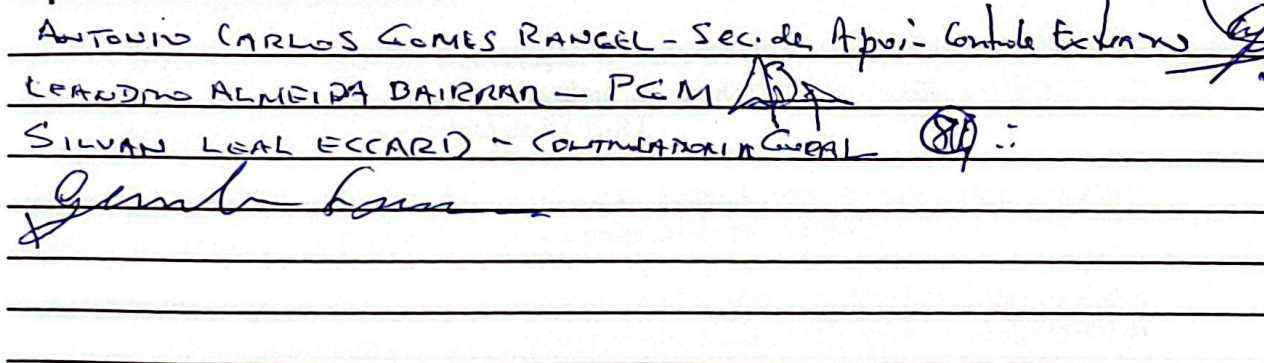 ANTONIO CARLOS GOMES RANGEL - Sec. de Apoi- Controle Externo
LEANDRO ALMEIDA BAIRRAR - PGM
SILVAN LEAL ECCARD - CONTROLADORIA GERAL